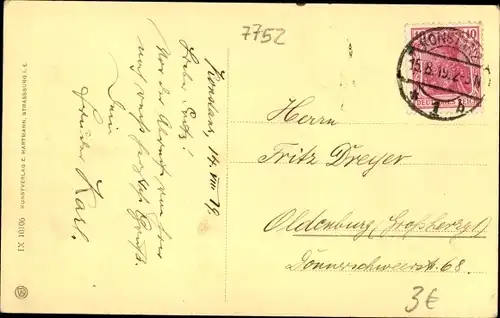 7752
Konstanz, 14. VIII 19.
Lieber Fritz!
Vor der Abreise von hier
noch rasch herzl. Gruß.
Dein
Karl.
KONSTANZ
15.8.19. 2-
10 10
DEUTSCHES REICH
Herrn
Fritz Dreyer
Oldenburg (Großherzgt.)
Donnerschweerstr. 68.
3€
IX 10106 KUNSTVERLAG C. HARTMANN, STRASSBURG I. E.